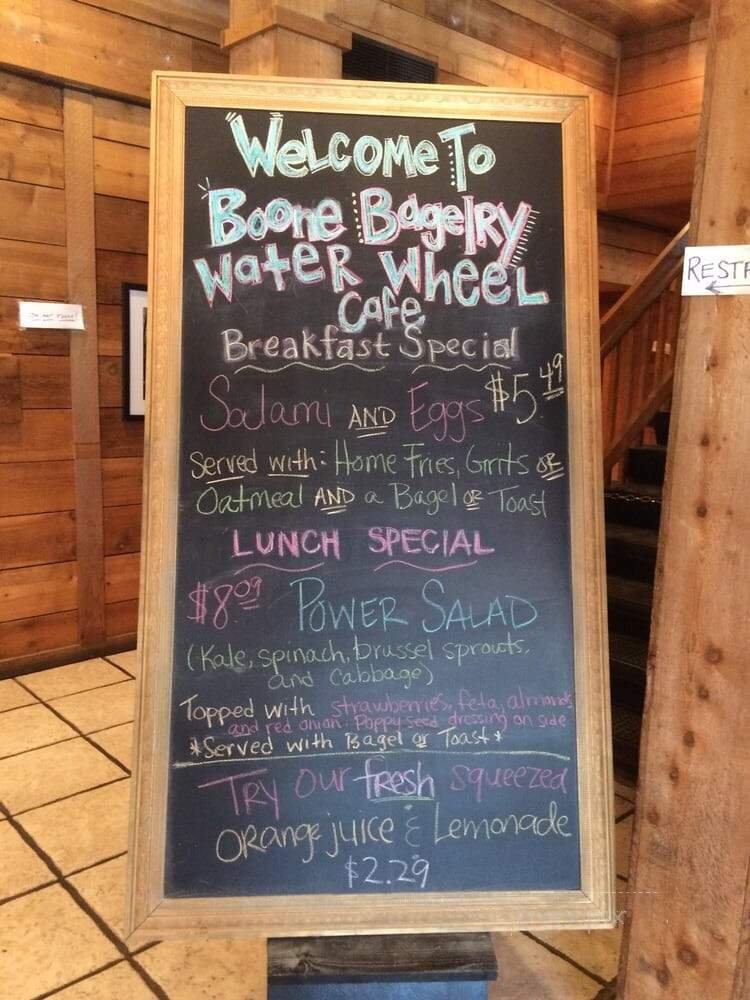 Welcome To
Boone Bagelry
Water Wheel
Cafe
Breakfast Special
Salami AND Eggs $5.49
Served with: Home Fries, Grits OR
Oatmeal AND a Bagel OR Toast
LUNCH SPECIAL
$8.09 POWER SALAD
(Kale, spinach, brussel sprouts,
and Cabbage)
Topped with strawberries, feta, almonds
and red onion. Poppyseed dressing on side
*Served with Bagel or Toast*
TRY our fresh squeezed
Orange juice & Lemonade
$2.29
REST